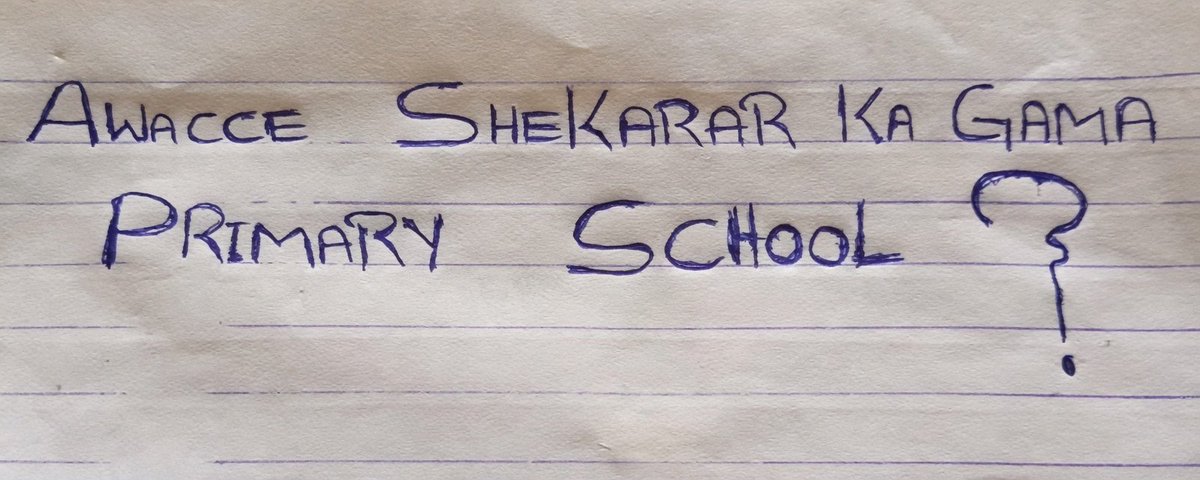 AWACCE SHEKARAR KA GAMA
PRIMARY SCHOOL ?